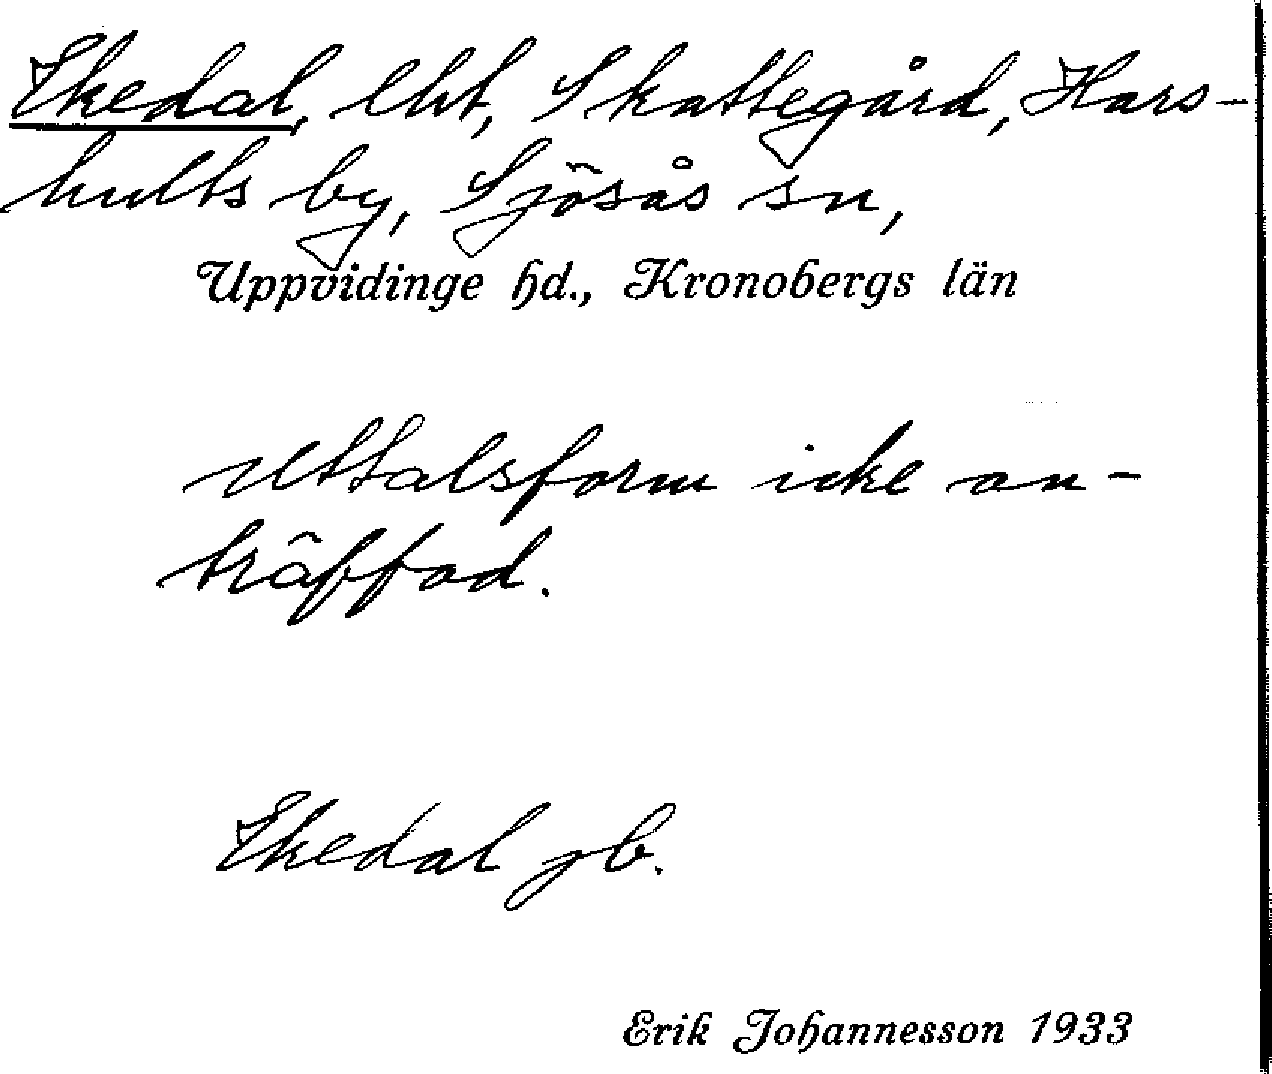 Ekedal, lht, Skattegård, Hars-
hults by, Sjösås sn,
Uppvidinge hd., Kronobergs län
Uttalsform icke an-
träffad.
Ekedal jb.
Erik Johannesson 1933